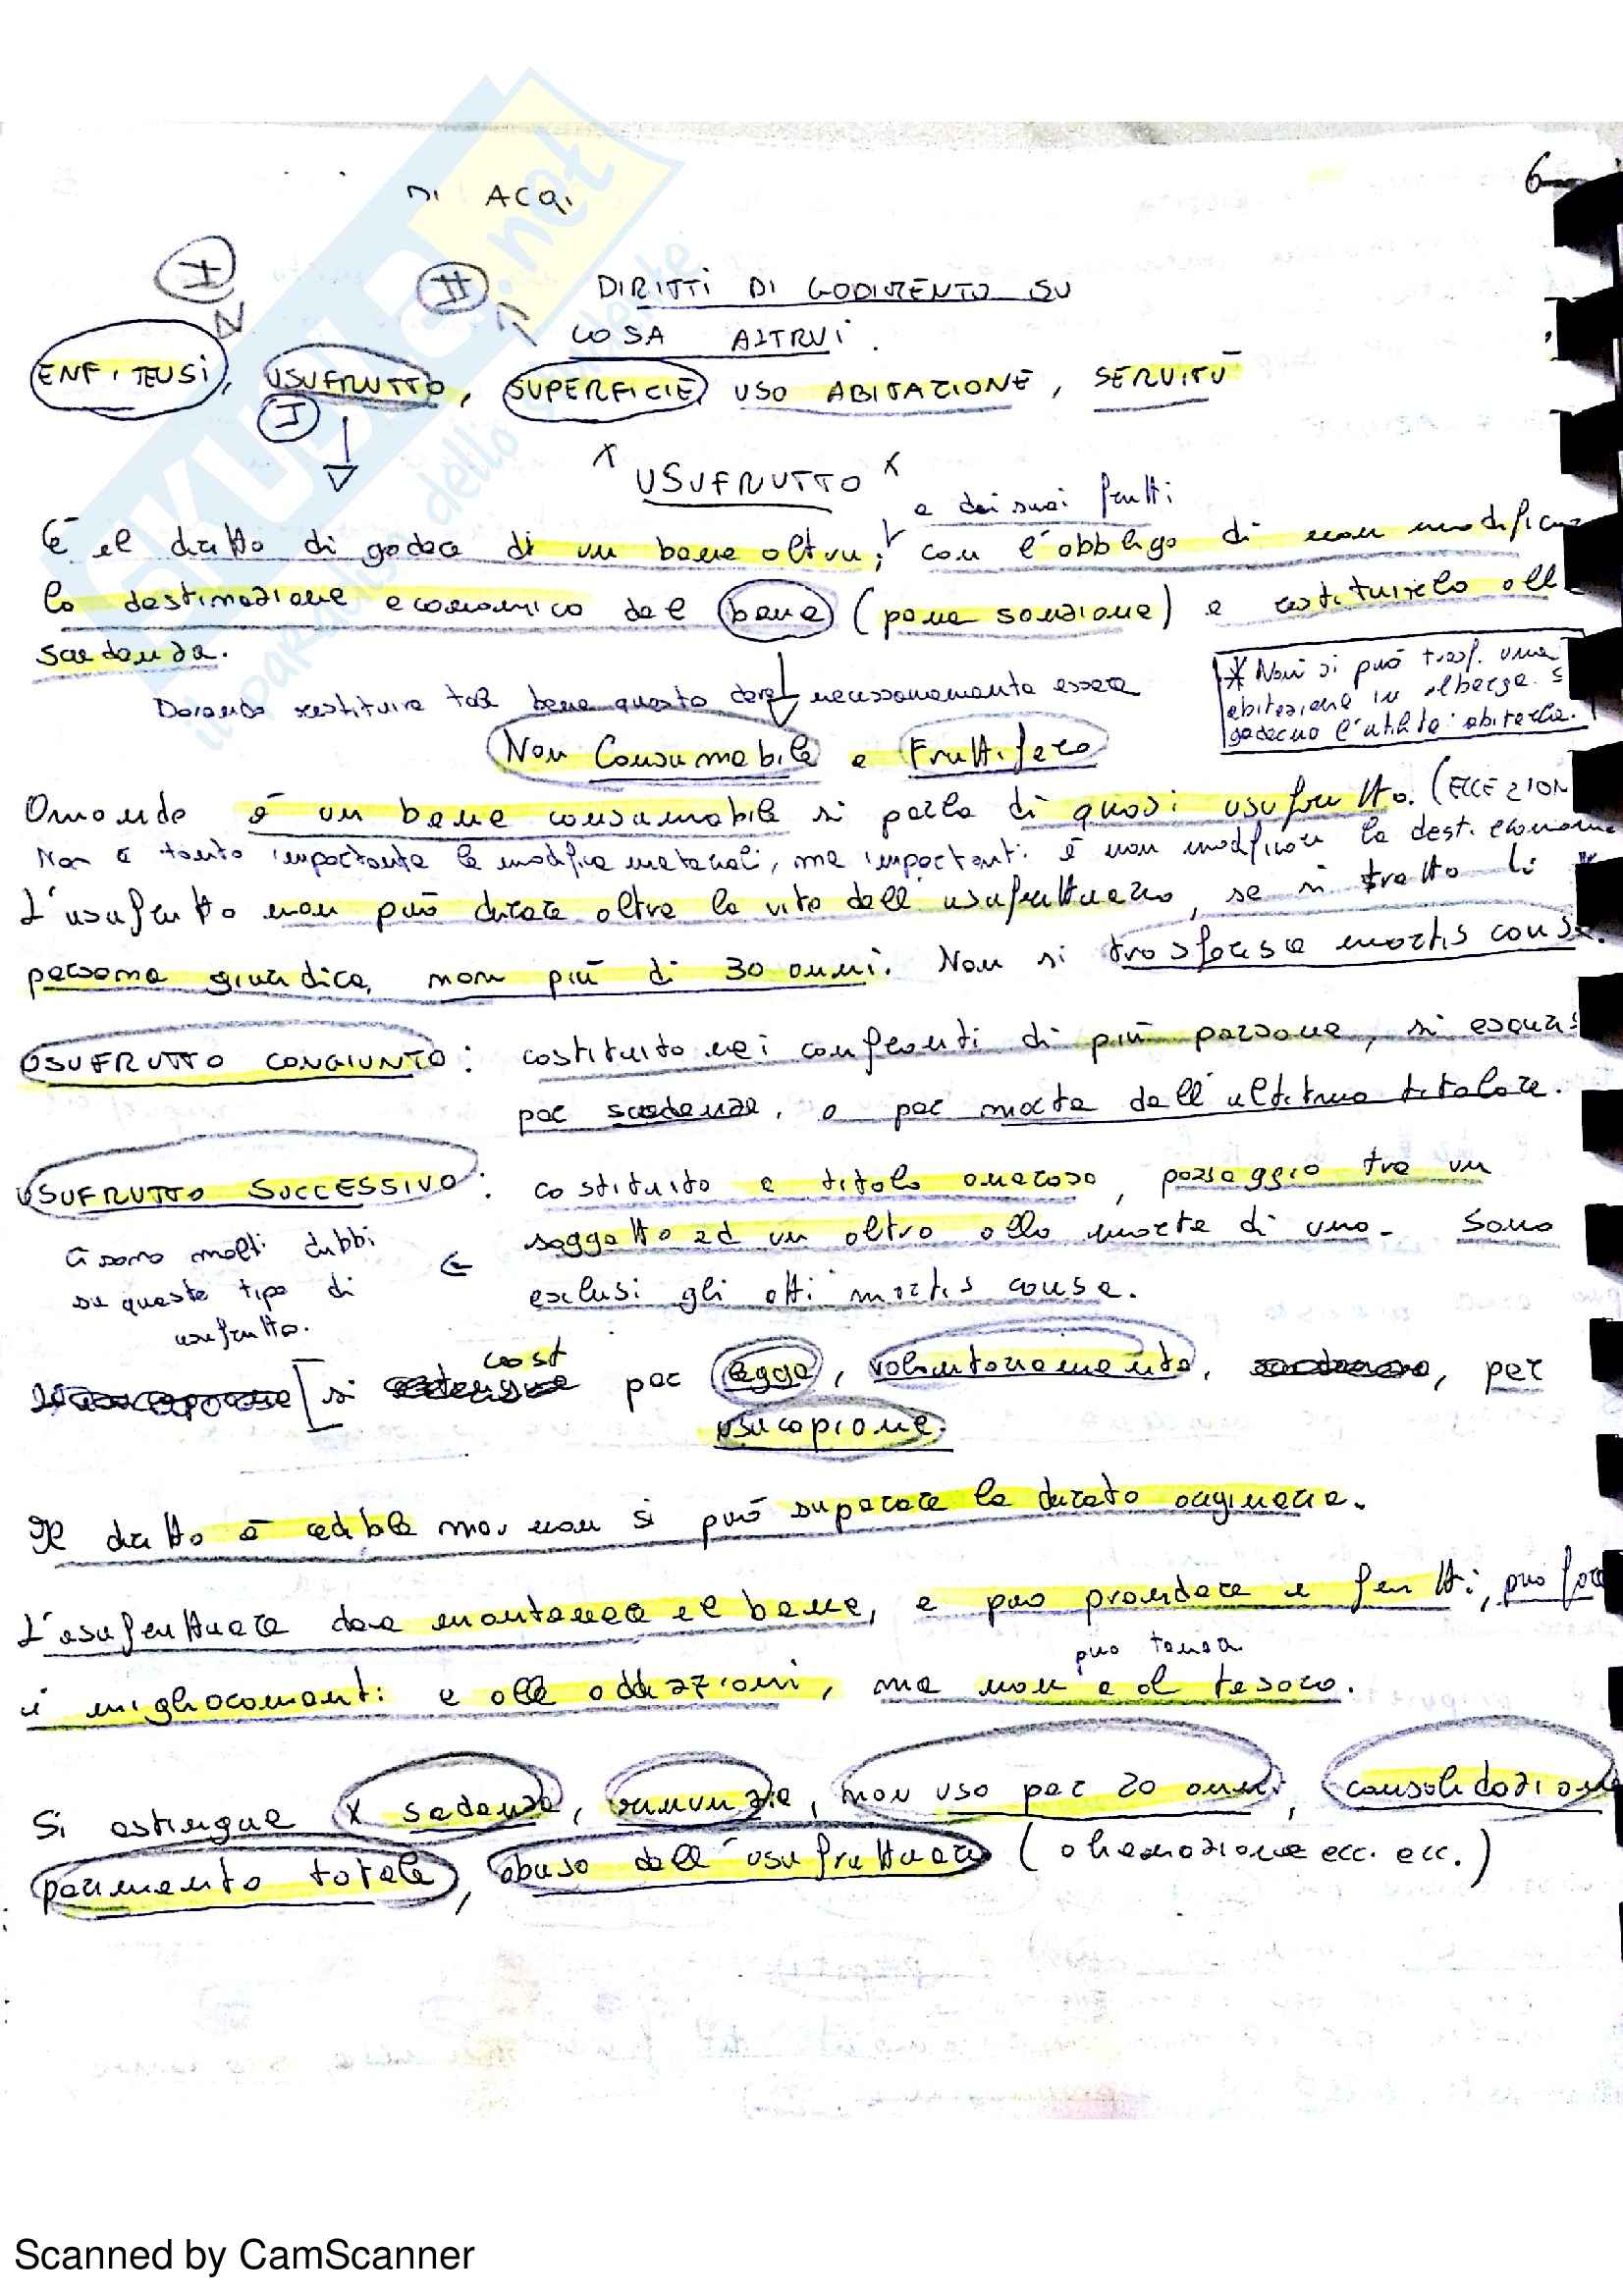 6
DI ACQ.
I
II
DIRITTI DI GODIMENTO SU
COSA ALTRUI.
ENFITEUSI, USUFRUTTO, SUPERFICIE, USO ABITAZIONE, SERVITÙ
I
x USUFRUTTO x
e dei suoi frutti
È il diritto di godere di un bene altrui, con l'obbligo di non modificare
la destinazione economica del bene (pena sanzione) e restituirlo alla
scadenza.
Dovendo restituire tale bene questo deve necessariamente essere
* Non si può trasf. una
abitazione in albergo. S
godremo l'utilità abitativa.
Non Consumabile e Fruttifero
Quando è un bene consumabile si parla di quasi usufrutto. (ECCEZION
Non è tanto importante le modifica materiali, ma important. è non modificare la dest. economica
L'usufrutto non può durare oltre la vita dell'usufruttuario, se si tratta di
persona giuridica, non più di 30 anni. Non si trasferisce mortis causa.
USUFRUTTO CONGIUNTO: costituito nei confronti di più persone, si esauris
per scadenza, o per morte dell'ultimo titolare.
USUFRUTTO SUCCESSIVO: costituito a titolo oneroso, passaggio tra un
soggetto ad un altro alla morte di uno. Sono
esclusi gli atti mortis causa.
Ci sono molti dubbi
su questo tipo di
usufrutto.
si cost per legge, volontariamente, per
usucapione.
Il diritto è cedibile ma non si può superare la durata originaria.
L'usufruttuario deve mantenere il bene, e può prendere i frutti, può fare
i miglioramenti e alle addizioni, ma non può tenere il tesoro.
Si estingue x scadenza, rinunzia, non uso per 20 anni, consolidazione
perimento totale, abuso dell'usufruttuario (alienazione ecc. ecc.)
SKUOLA.net
il paradiso dello studente
Scanned by CamScanner